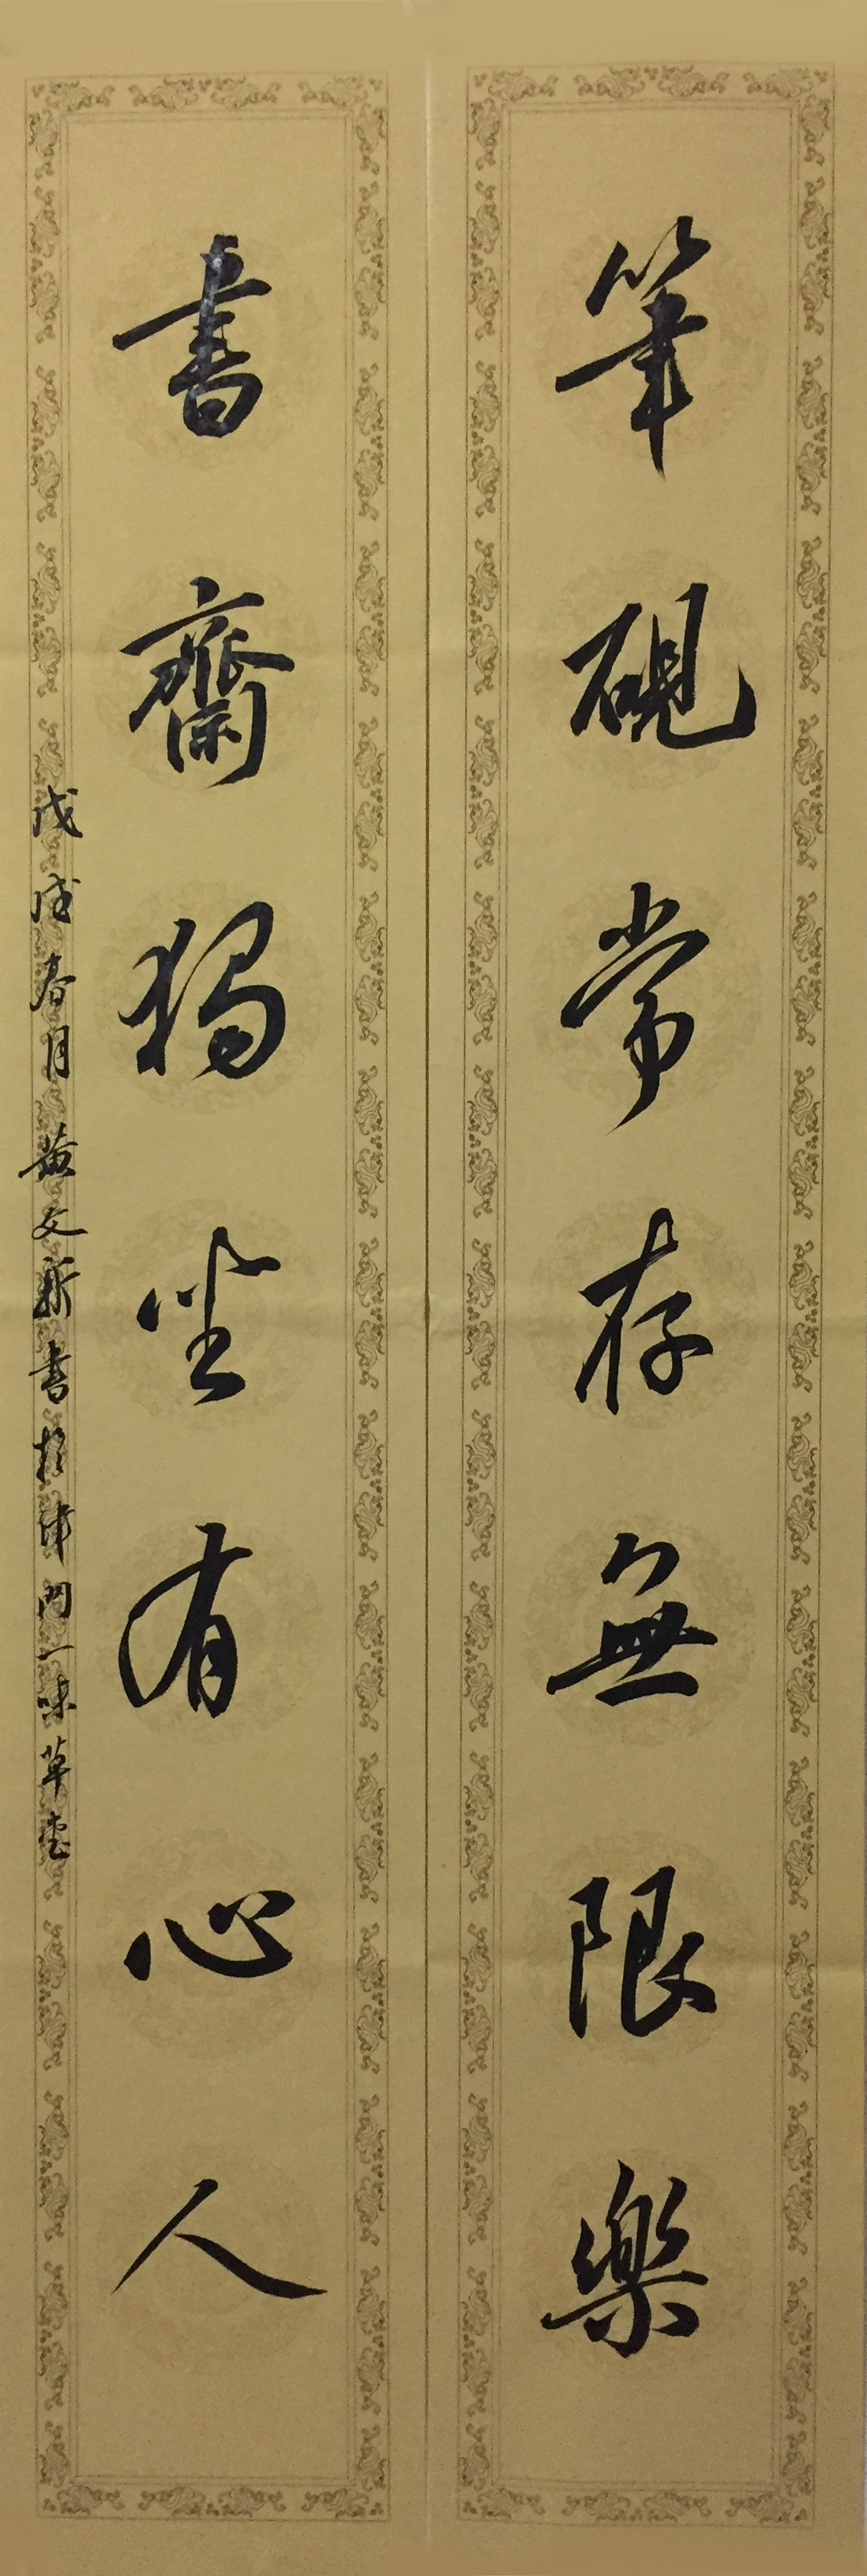 筆硯常存無限樂
書齋獨坐有心人
戊戌春月 黄文新書於津門一味草堂